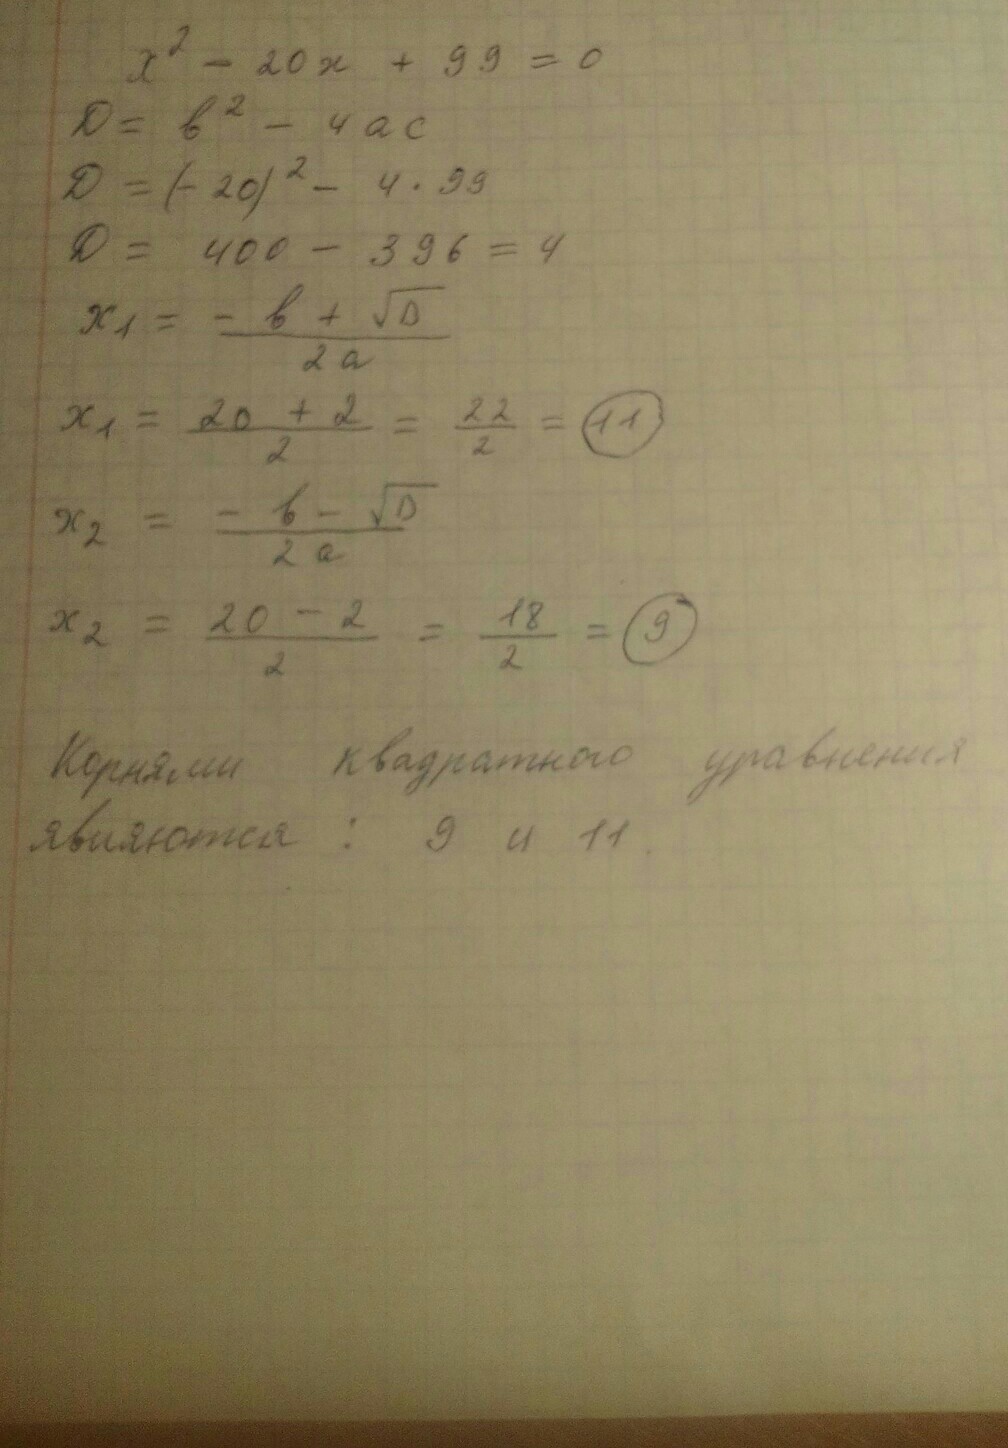 x² - 20x + 99 = 0
D = b² - 4ac
D = (-20)² - 4·99
D = 400 - 396 = 4
x₁ = (-b + √D)/2a
x₁ = (20 + 2)/2 = 22/2 = 11
x₂ = (-b - √D)/2a
x₂ = (20 - 2)/2 = 18/2 = 9
Корнями квадратного уравнения
являются : 9 и 11.